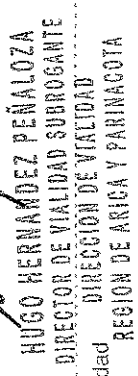 HUGO HERNANDEZ PEÑALOZA
DIRECTOR DE VIALIDAD SUBROGANTE
DIRECCION DE VIALIDAD
dad
REGION DE ARICA Y PARINACOTA